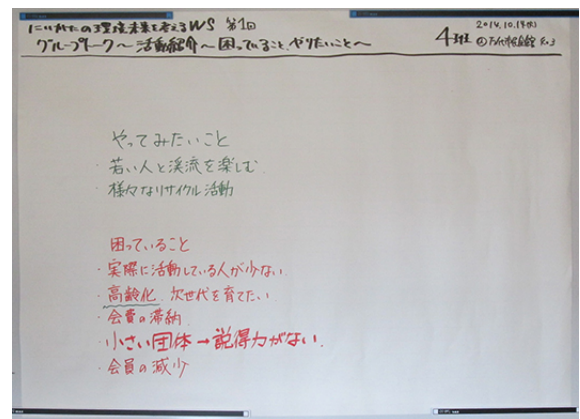 にいがたの環境未来を考えるWS 第1回
グループトーク〜活動紹介〜困っていること、やりたいこと〜
4班
2014.10.19(日)
やってみたいこと
・若い人と渓流を楽しむ
・様々なリサイクル活動
困っていること
・実際に活動している人が少ない
・高齢化 次世代を育てたい
・会費の滞納
・小さい団体→説得力がない
・会員の減少